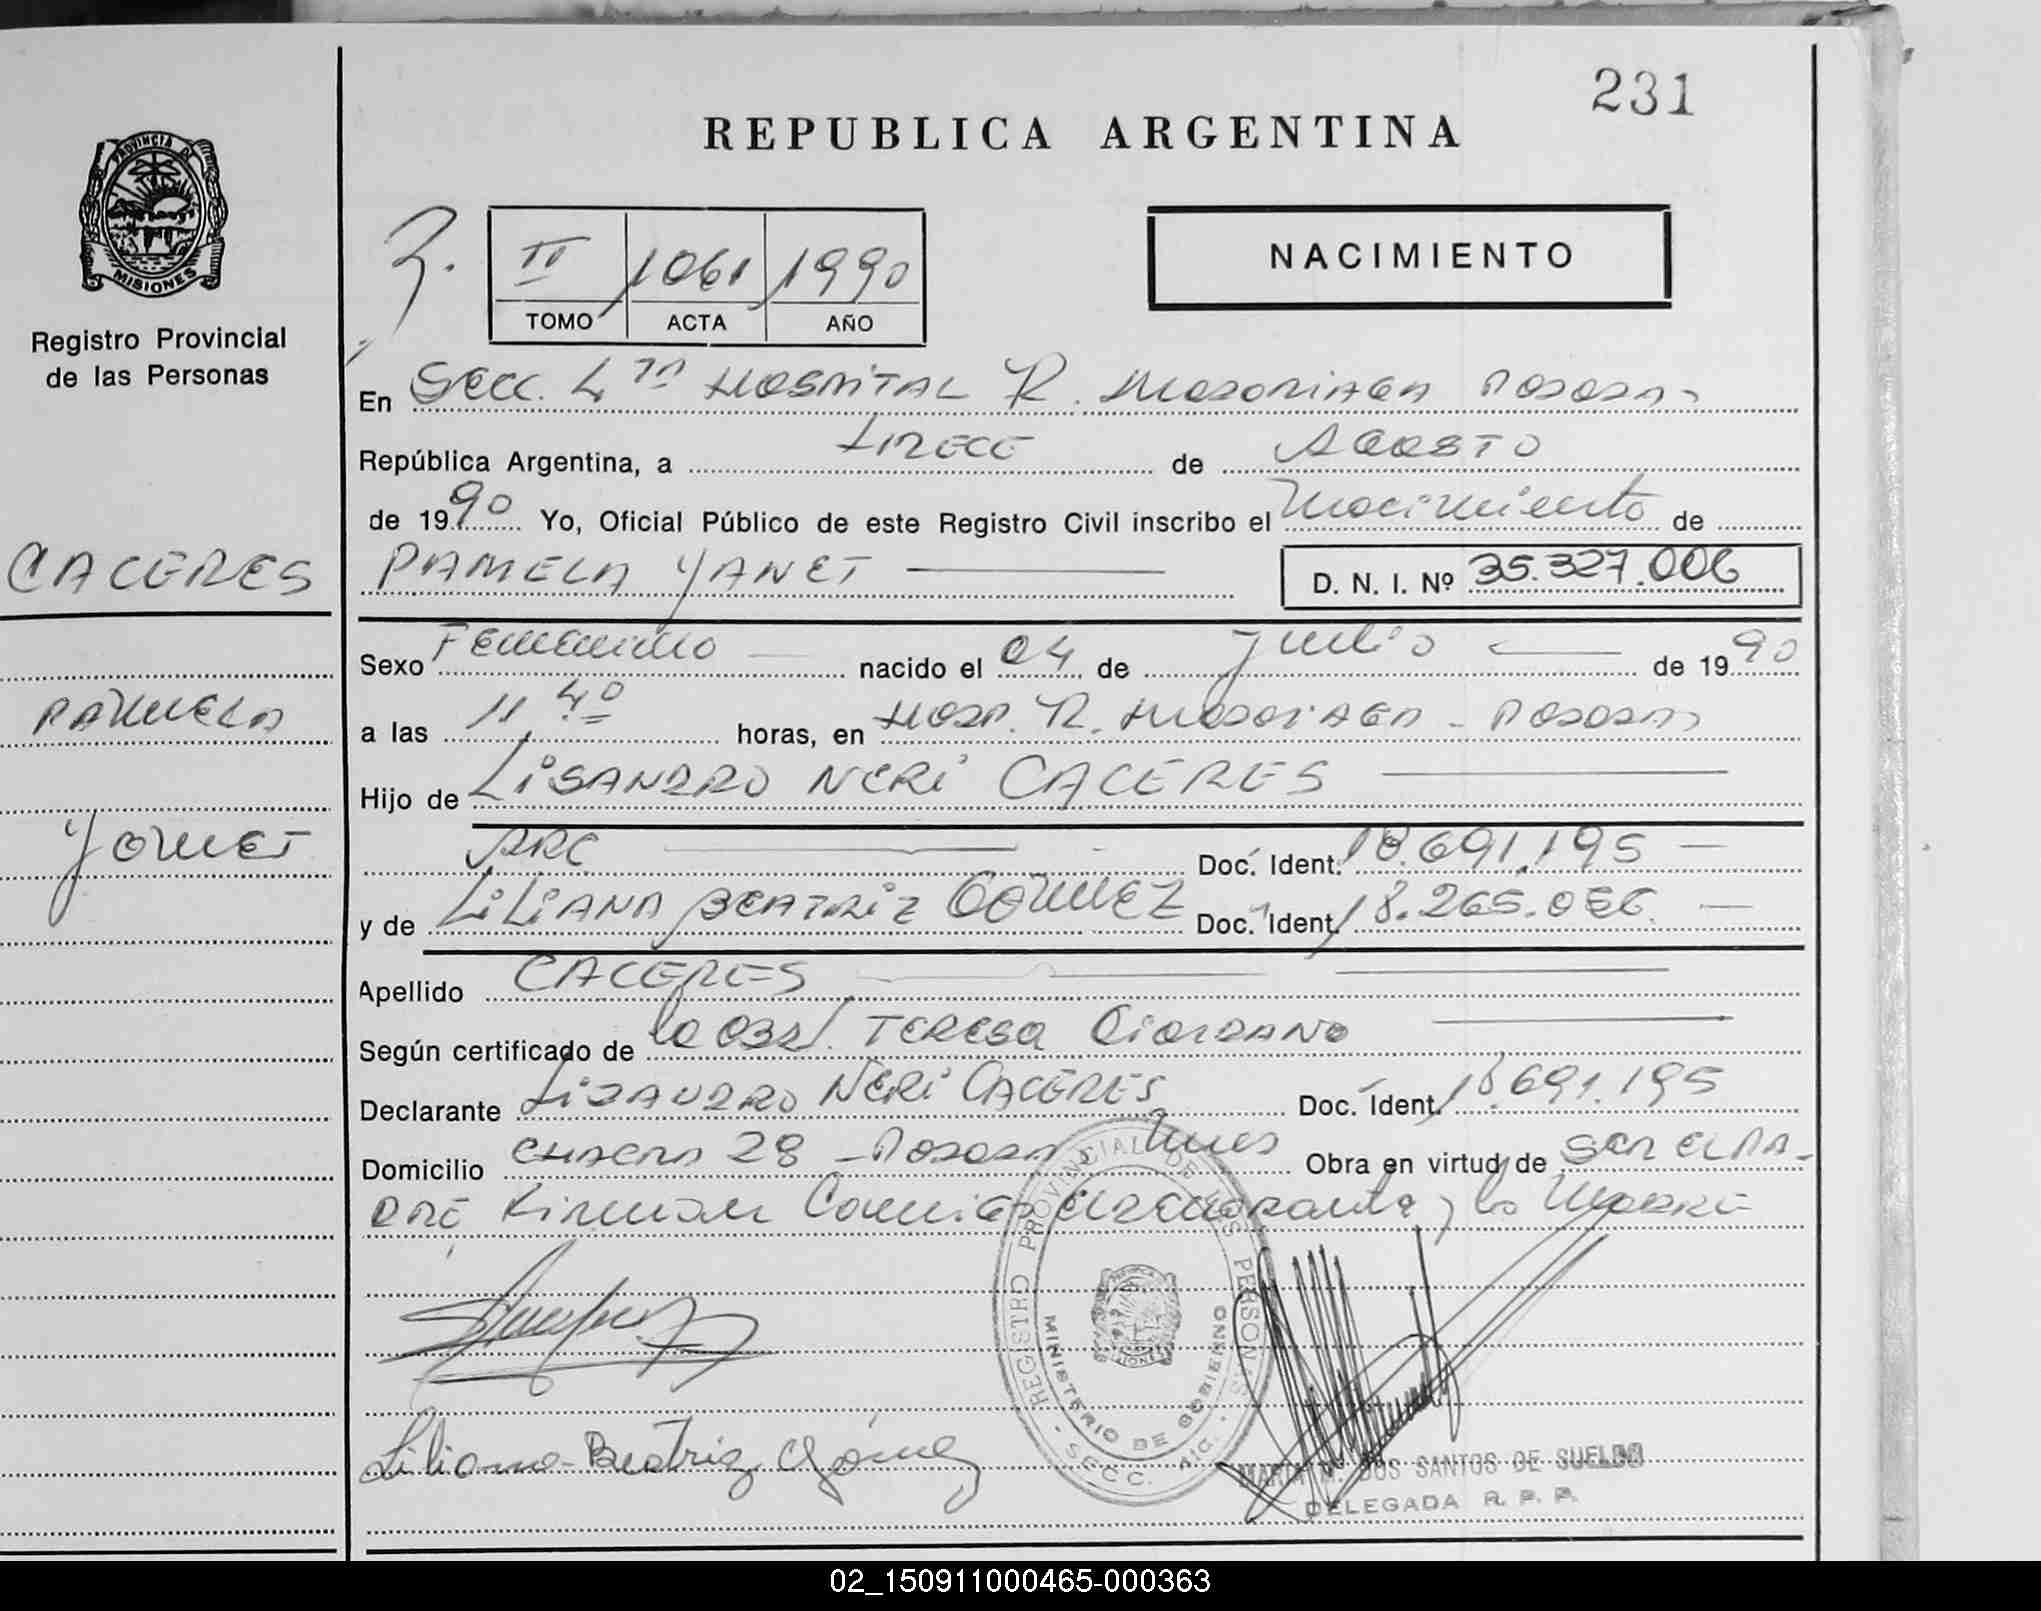 231
REPUBLICA ARGENTINA
PROVINCIA DE
MISIONES
Registro Provincial
de las Personas
II 1061 1990
TOMO ACTA AÑO
NACIMIENTO
En Secc. 4ta HOSPITAL R. MADARIAGA POSADAS
República Argentina, a TRECE de AGOSTO
de 1990 Yo, Oficial Público de este Registro Civil inscribo el Nacimiento de
CACERES
PAMELA YANET
D. N. I. Nº 35.327.006
Sexo Femenino nacido el 04 de Julio de 1990
PAMELA
a las 11 40 horas, en HOSP. R. MADARIAGA - POSADAS
Hijo de LISANDRO NERI CACERES
YANET
ARG Doc. Ident. 18.691.195
y de LILIANA BEATRIZ GOMEZ Doc. Ident. 18.265.056
Apellido CACERES
Según certificado de la Obst. TERESA GIORDANO
Declarante LIZANDRO NERI CACERES Doc. Ident. 18.691.195
Domicilio CHACRA 28 - POSADAS Mnes Obra en virtud de SER EL PA-
DRE Firman Conmigo el declarante y la MADRE
REGISTRO PROVINCIAL DE LAS PERSONAS
MINISTERIO DE GOBIERNO
MISIONES
SECC.
Liliana Beatriz Gómez
MARIA M. DOS SANTOS DE SUELDO
DELEGADA R. P. P.
02_150911000465-000363